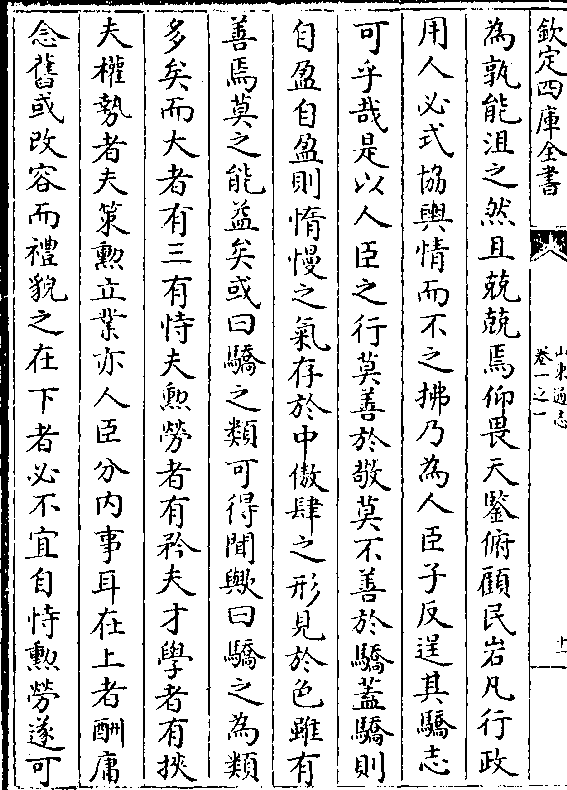 欽定四庫全書
山東通志
卷一之一
十二
為孰能沮之然且兢兢焉仰畏天鑒俯顧民岩凡行政
用人必式協輿情而不之拂乃為人臣子反逞其驕志
可乎哉是以人臣之行莫善於敬莫不善於驕蓋驕則
自盈自盈則惰慢之氣存於中傲肆之形見於色雖有
善焉莫之能益矣或曰驕之類可得聞歟曰驕之為類
多矣而大者有三有恃夫勲勞者有矜夫才學者有挾
夫權勢者夫策勲立業亦人臣分内事耳在上者酬庸
念舊或改容而禮貌之在下者必不宜自恃勲勞遂可